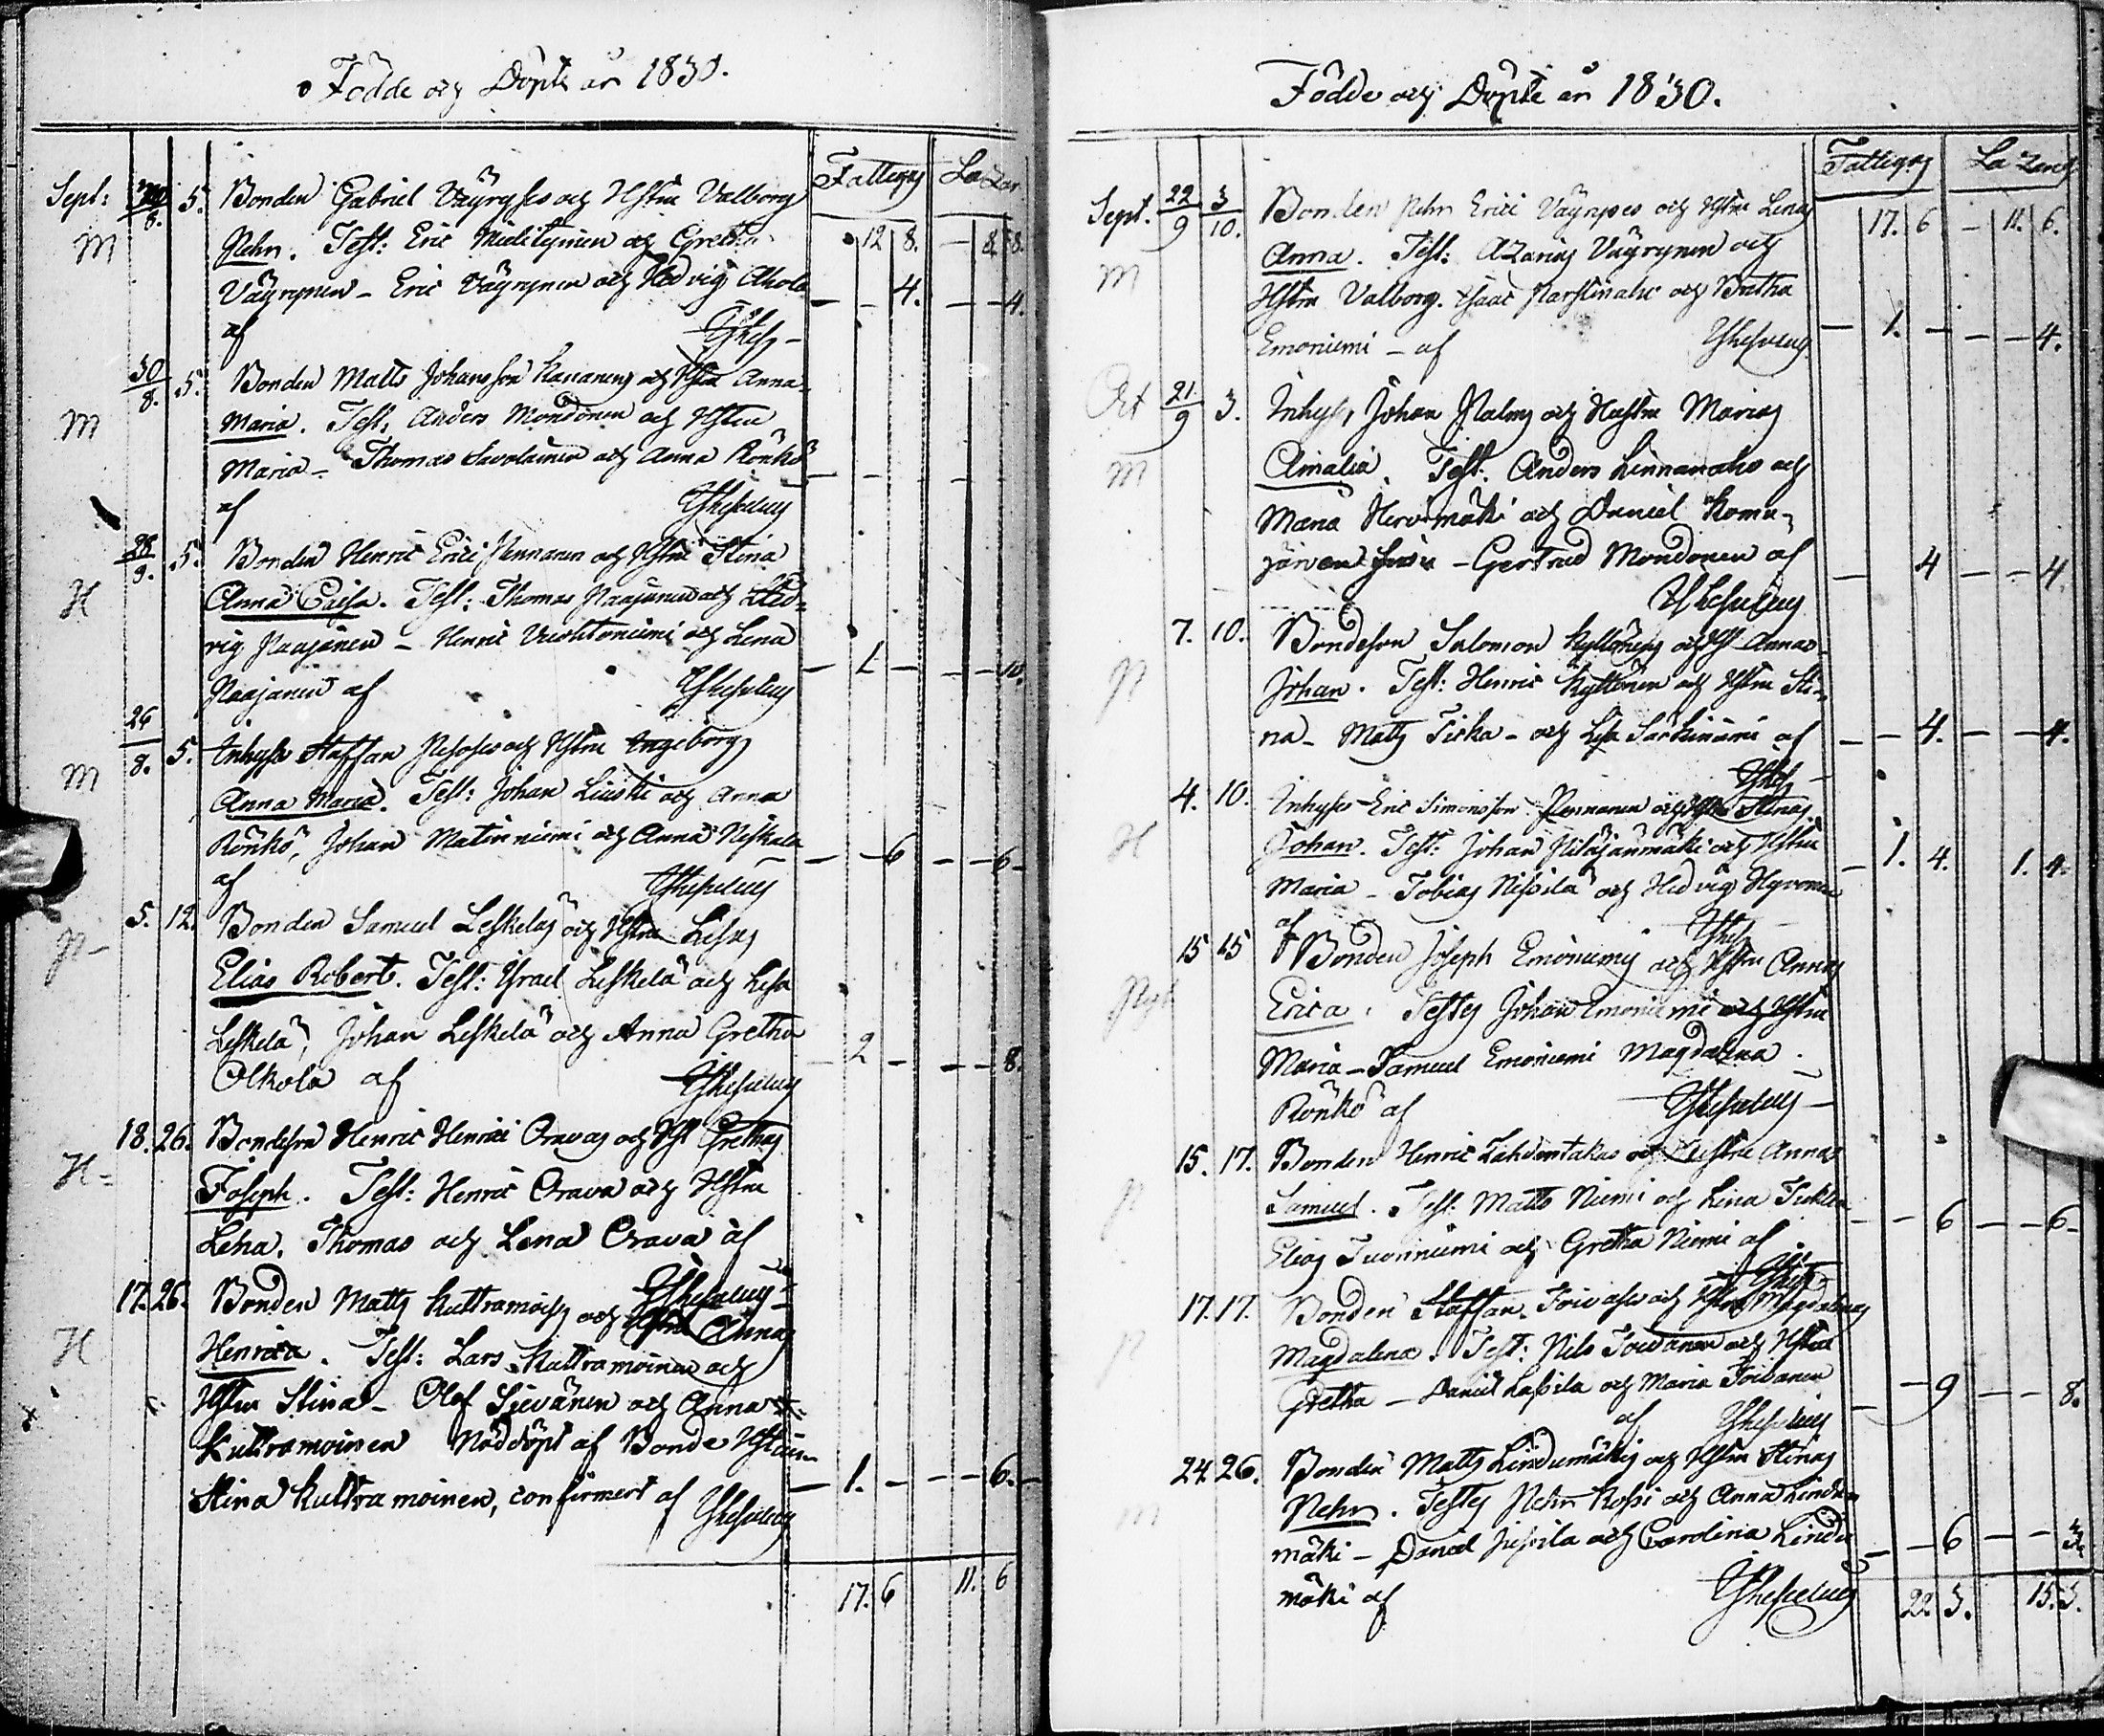 Födde och Döpte år 1830.
Fattigs Lazar.
Sept: 30/8. 5. Bonden Gabriel Väyryses och Hstru Valborg
M Pehr. Test: Eric Mielitynen och Gretha 12 8. – 8. 8.
Väyrynen – Eric Väyrynen och Hedvig Ahola – – 4. – – 4.
af
30/8. 5. Bonden Matts Johansson Kananens och Hstru Anna
M Maria. Test: Anders Mondonen och Hstru
Maria – Thomas Savolainen och Anna Rönkö
af
28/9. 5. Bonden Henric Erici Pennanen och Hstru Stina
H Anna Caisa. Test: Thomas Naajanen och Hed=
vig Naajanen – Henric Vuohtoniemi och Lena
Naajanen af – 1. – – – 10.
26/8. 5. Inhyses Staffan och Hstru Ingeborg
M Anna Maria. Test: Johan Liuski och Anna
Rönkö, Johan Matinniemi och Anna Neskala – – 6 – – 6
af
5. 12. Bonden Samuel Leskeläs och Hstru Lisas
N– Elias Robert. Test: Israel Leskelä och Lisa
Leskelä, Johan Leskelä och Anna Gretha – 2 – – – 8.
Olkola af
18. 26. Bondeson Henric Henrici Oravas och Hst Grethas
H= Joseph. Test: Henric Orava och Hstru
Lena, Thomas och Lena Orava af
17. 26. Bonden Matts och Hstru Annas
H Henrica. Test: Lars Kuttramoinen och
Hstru Stina – Olof Sievänen och Anna
Kuttramoinen Nöddöpt af Bonde Hstrun
Stina Kuttramoinen, confirmert af – 1. – – – 6. –
17. 6 11. 6
Födde och Döpte år 1830.
Fattigs Lazareth
Sept. 22/9 3/10. Bonden Pehr Erici Väyryses och Hstru Lenas 17. 6 – 11. 6.
M Anna. Test: Azarias Väyrynen och
Hstru Valborg. Isaac Karsinaho och Britha
Emoniemi – af – 1. – – – 4.
Oct 21/9 3. Inhys. Johan Palms och Hustru Marias
M Amalia. Test. Anders Linnanaho och
Maria Hervimäki och Daniel Komu=
järven – Gertrud Mondonen af – 4 – – 4.
7. 10. Bondeson Salomon Kyllönens och Hst Annas
N Johan. Test: Henric Kyllönen och Hstru Sti=
na – Matts Tirka – och Lisa Särkiniemi af – – 4. – – 4.
4. 10. Inhyses Eric Simonsson Pennanen och Hstru Stinas
H Johan. Test: Johan och Hstru – 1. 4. 1. 4.
Maria – Tobias Nissilä och Hedvig Hyvönen
af
15 15 Bonden Joseph Emoniemis och Hstru Annas
Erica. Testes Johan Emoniemi och Hstru
Maria – Samuel Emoniemi Magdalena
Rönkö af
15. 17. Bonden Henric Lahdentakas och Hustru Annas
N Samuel. Test: Matts Niemi och Lina – – 6 – – 6
Elias och Gretha Niemi af
17. 17. Bonden Staffan Toivases och Hstru Magdalenas
N Magdalena. Test: Nils Toivanen och Hstru
Gretha – Daniel Lassila och Maria Toivanen – – 9 – – 8.
af
24. 26. Bonden Matts Lindumäkis och Hstru Stinas
M Pehr. Testes Pehr Kossi och Anna Lindu
mäki – Daniel och Carolina Lindu – – 6 – – 3.
mäki af 22. 3. 15. 3.